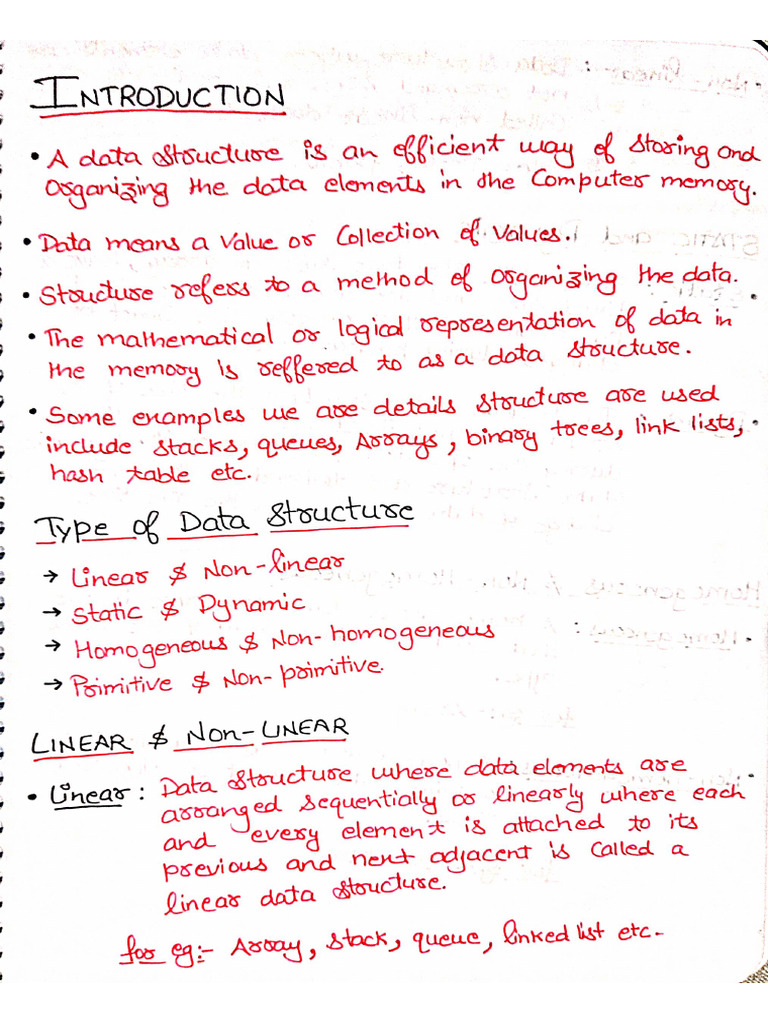 INTRODUCTION
• A data structure is an efficient way of storing and
organizing the data elements in the Computer memory.
• Data means a Value or Collection of Values.
• Structure refers to a method of organizing the data.
• The mathematical or logical representation of data in
the memory is reffered to as a data structure.
• Some examples we are details structure are used
include stacks, queues, Arrays, binary trees, link lists,
hash table etc.
Type of Data Structure
→ Linear & Non-linear
→ Static & Dynamic
→ Homogeneous & Non-homogeneous
→ Primitive & Non-primitive.
LINEAR & NON-LINEAR
• Linear: Data structure where data elements are
arranged sequentially or linearly where each
and every element is attached to its
previous and next adjacent is called a
linear data structure.
for eg:- Array, stack, queue, linked list etc-